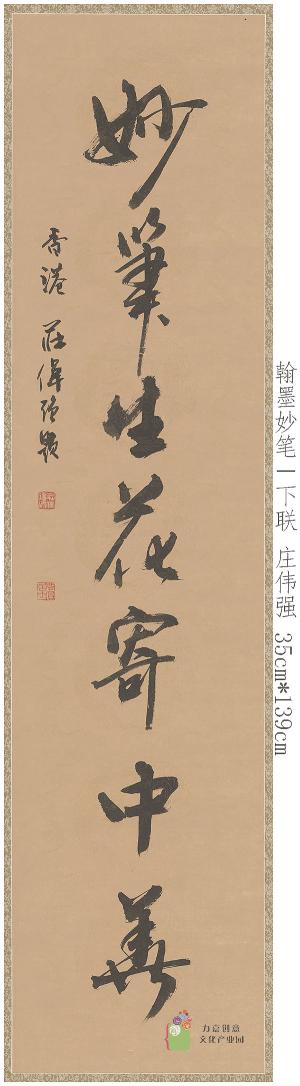 妙筆生花寄中華
香港 莊偉強題
翰墨妙笔一下联 庄伟强 35cm*139cm
力意创意
文化产业园